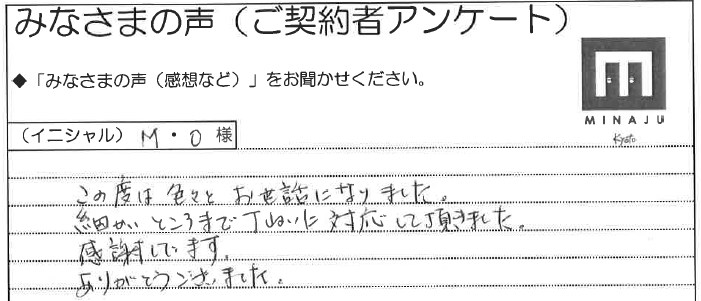 みなさまの声（ご契約者アンケート）
◆「みなさまの声（感想など）」をお聞かせください。
MINAJU
Kyoto
（イニシャル） M・O 様
この度は色々とお世話になりました。
細かいところまで丁ねいに対応して頂きました。
感謝しています。
ありがとうございました。